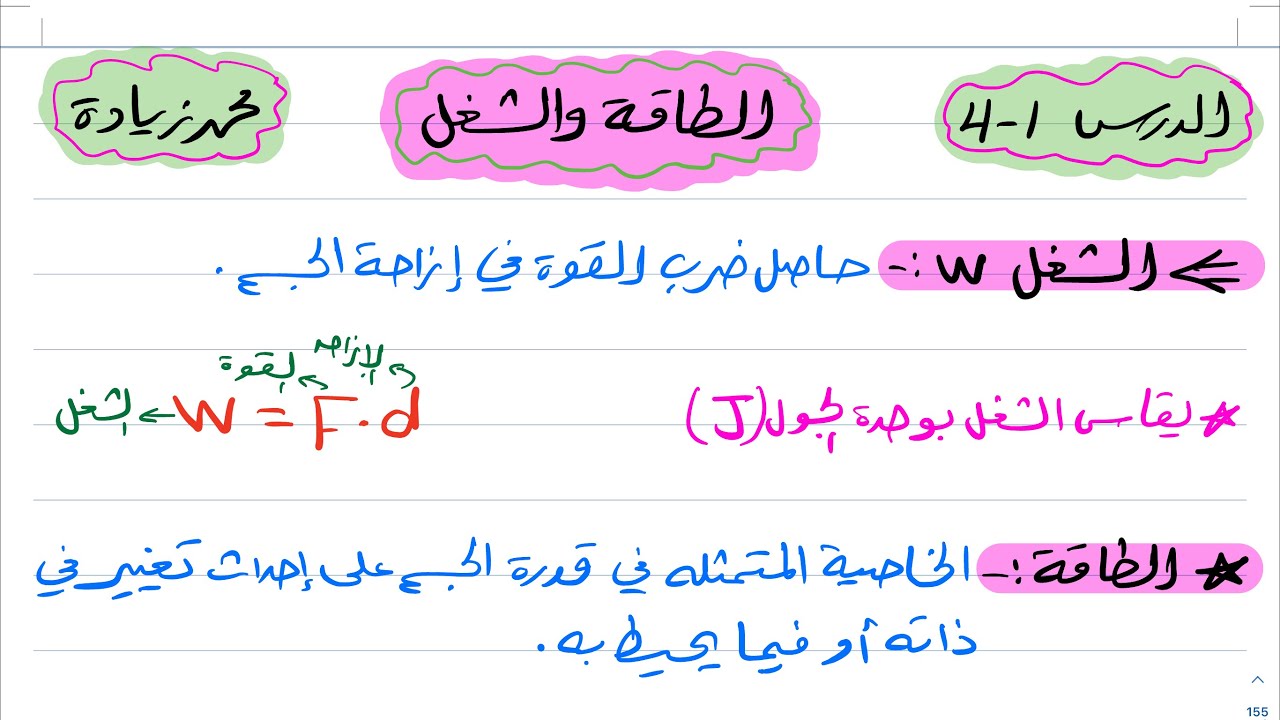 الدرس 1-4
الطاقة والشغل
محمد زيادة
الشغل W :- حاصل ضرب القوة في إزاحة الجسم .
الإزاحة
القوة
* يقاس الشغل بوحدة الجول (J)
W = F . d
الشغل
* الطاقة :- الخاصية المتمثله في قدرة الجسم على إحداث تغيير في
ذاته أو فيما يحيط به .
155